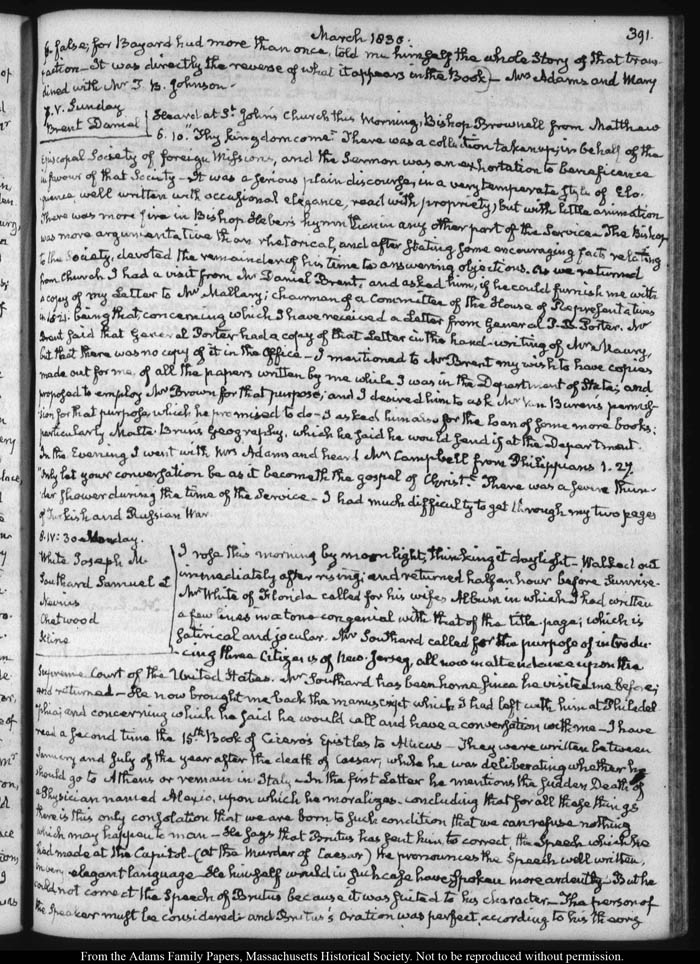 March 1830.
391.
is false; for Bayard had more than once, told me himself the whole Story of that trans-
action — It was directly the reverse of what it appears in the Book) — Mrs Adams and Mary
dined with Mr T. B. Johnson.
7. V. Sunday
Brent Daniel
Heard at St. John's Church this Morning, Bishop Brownell from Matthew
6. 10. "Thy kingdom come." There was a collection taken up, in behalf of the
Episcopal Society of foreign Missions, and the Sermon was an exhortation to beneficence
in favour of that Society — It was a serious plain discourse, in a very temperate style of Elo-
quence, well written with occasional elegance, read with propriety, but with little animation
There was more fire in Bishop Heber's hymn than in any other part of the Service — The Bishop
was more argumentative than rhetorical, and after stating some encouraging facts relating
to the Society, devoted the remainder of his time to answering objections. As we returned
from Church I had a visit from Mr Daniel Brent, and asked him, if he could furnish me with
a copy of my Letter to Mr Mallary; chairman of a Committee of the House of Representatives
in 1821. being that concerning which I have received a Letter from General P. B. Porter. Mr
Brent said that General Porter had a copy of that Letter in the hand-writing of Mr Maury,
but that there was no copy of it in the Office — I mentioned to Mr Brent my wish to have copies
made out for me, of all the papers written by me while I was in the Department of State; and
proposed to employ Mr Brown for that purpose; and I desired him to ask Mr Van Buren's permis-
sion for that purpose, which he promised to do — I asked him also for the loan of some more books;
particularly Malte-Brun's Geography, which he said he would send if at the Department.
In the Evening I went with Mrs Adams and heard Mr Campbell from Philippians 1. 27.
"Only let your conversation be as it becometh the gospel of Christ." There was a severe thun-
der shower during the time of the Service — I had much difficulty to get through my two pages
of Turkish and Russian War.
8. IV: 30 Monday.
White Joseph M.
Southard Samuel L
Nevius
Chetwood
Kline
I rose this morning by moonlight, thinking it daylight — Walked out
immediately after rising; and returned half an hour before Sunrise —
Mr White of Florida called for his wife's Album in which I had written
a few lines in a tone congenial with that of the title-page; which is
satirical and jocular. Mr Southard called for the purpose of introdu-
cing three Citizens of New Jersey, all now in attendance upon the
Supreme Court of the United States. Mr Southard has been home since he visited me before;
and returned — He now brought me back the manuscript which I had left with him at Philadel-
phia; and concerning which he said he would call and have a conversation with me — I have
read a second time the 15th Book of Cicero's Epistles to Atticus — They were written between
January and July of the year after the death of Caesar, while he was deliberating whether he
should go to Athens or remain in Italy — In the first Letter he mentions the sudden Death of
a Physician named Alexio, upon which he moralizes — concluding that for all these things
there is this only consolation that we are born to such condition that we can refuse nothing
which may happen to man — He says that Brutus has sent him, to correct the Speech which he
had made at the Capitol (at the Murder of Caesar) He pronounces the Speech well written,
in very elegant language — He himself would in such case have spoken more ardently — But he
could not correct the Speech of Brutus because it was suited to his character — The person of
the Speaker must be considered: and Brutus's Oration was perfect, according to his theory
From the Adams Family Papers, Massachusetts Historical Society. Not to be reproduced without permission.